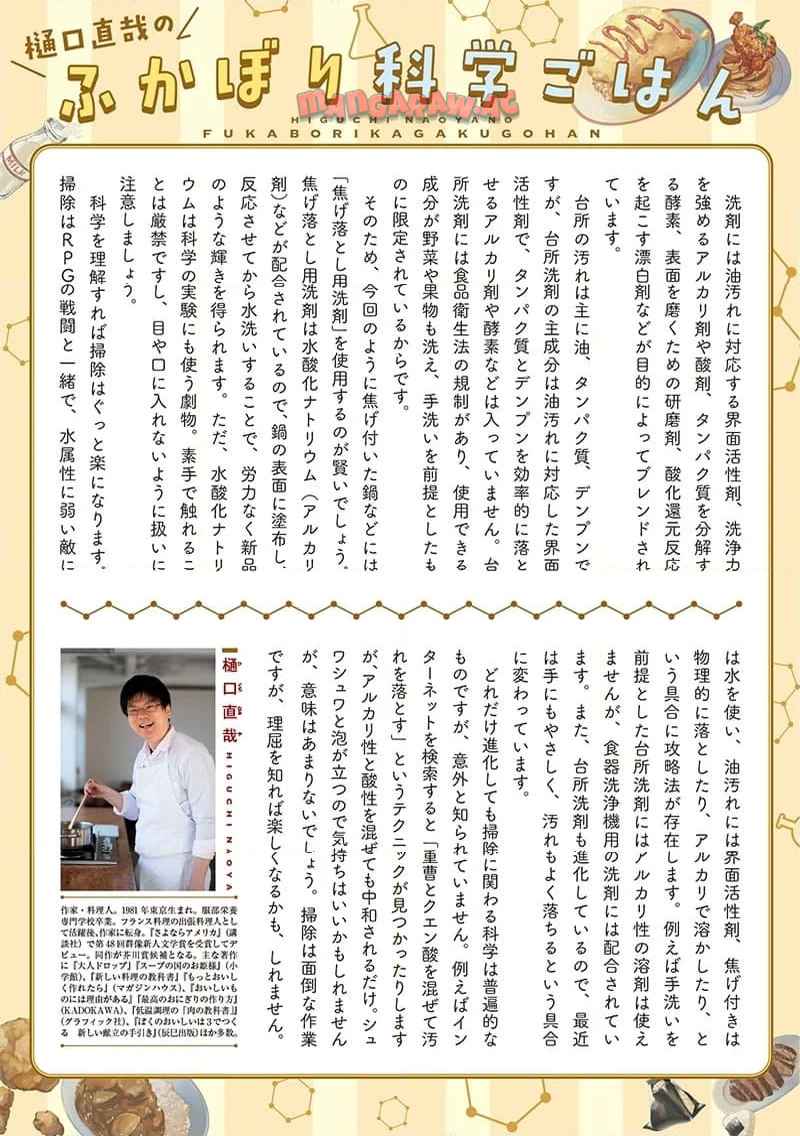 樋口直哉の
ふかぼり科学ごはん
MANGARAW.AC
HIGUCHI NAOYANO
FUKABORIKAGAKUGOHAN
MILK
洗剤には油汚れに対応する界面活性剤、洗浄力
を強めるアルカリ剤や酸剤、タンパク質を分解す
る酵素、表面を磨くための研磨剤、酸化還元反応
を起こす漂白剤などが目的によってブレンドされ
ています。
台所の汚れは主に油、タンパク質、デンプンで
すが、台所洗剤の主成分は油汚れに対応した界面
活性剤で、タンパク質とデンプンを効率的に落と
せるアルカリ剤や酵素などは入っていません。台
所洗剤には食品衛生法の規制があり、使用できる
成分が野菜や果物も洗え、手洗いを前提としたも
のに限定されているからです。
そのため、今回のように焦げ付いた鍋などには
「焦げ落とし用洗剤」を使用するのが賢いでしょう。
焦げ落とし用洗剤は水酸化ナトリウム（アルカリ
剤）などが配合されているので、鍋の表面に塗布し、
反応させてから水洗いすることで、労力なく新品
のような輝きを得られます。ただ、水酸化ナトリ
ウムは科学の実験にも使う劇物。素手で触れるこ
とは厳禁ですし、目や口に入れないように扱いに
注意しましょう。
科学を理解すれば掃除はぐっと楽になります。
掃除はRPGの戦闘と一緒で、水属性に弱い敵に
は水を使い、油汚れには界面活性剤、焦げ付きは
物理的に落としたり、アルカリで溶かしたり、と
いう具合に攻略法が存在します。例えば手洗いを
前提とした台所洗剤にはアルカリ性の溶剤は使え
ませんが、食器洗浄機用の洗剤には配合されてい
ます。また、台所洗剤も進化しているので、最近
は手にもやさしく、汚れもよく落ちるという具合
に変わっています。
どれだけ進化しても掃除に関わる科学は普遍的な
ものですが、意外と知られていません。例えばイン
ターネットを検索すると「重曹とクエン酸を混ぜて汚
れを落とす」というテクニックが見つかったりします
が、アルカリ性と酸性を混ぜても中和されるだけ。シュ
ワシュワと泡が立つので気持ちはいいかもしれません
が、意味はあまりないでしょう。掃除は面倒な作業
ですが、理屈を知れば楽しくなるかも、しれません。
樋口直哉
HIGUCHI NAOYA
作家・料理人。1981年東京生まれ。服部栄養
専門学校卒業。フランス料理の出張料理人とし
て活躍後、作家に転身。『さよならアメリカ』（講
談社）で第48回群像新人文学賞を受賞してデ
ビュー。同作が芥川賞候補となる。主な著作
に『大人ドロップ』『スープの国のお姫様』（小
学館）、『新しい料理の教科書』『もっとおいし
く作れたら』（マガジンハウス）、『おいしいも
のには理由がある』『最高のおにぎりの作り方』
（KADOKAWA）、『低温調理の「肉の教科書」』
（グラフィック社）、『ぼくのおいしいは3でつく
る　新しい献立の手引き』（辰巳出版）ほか多数。